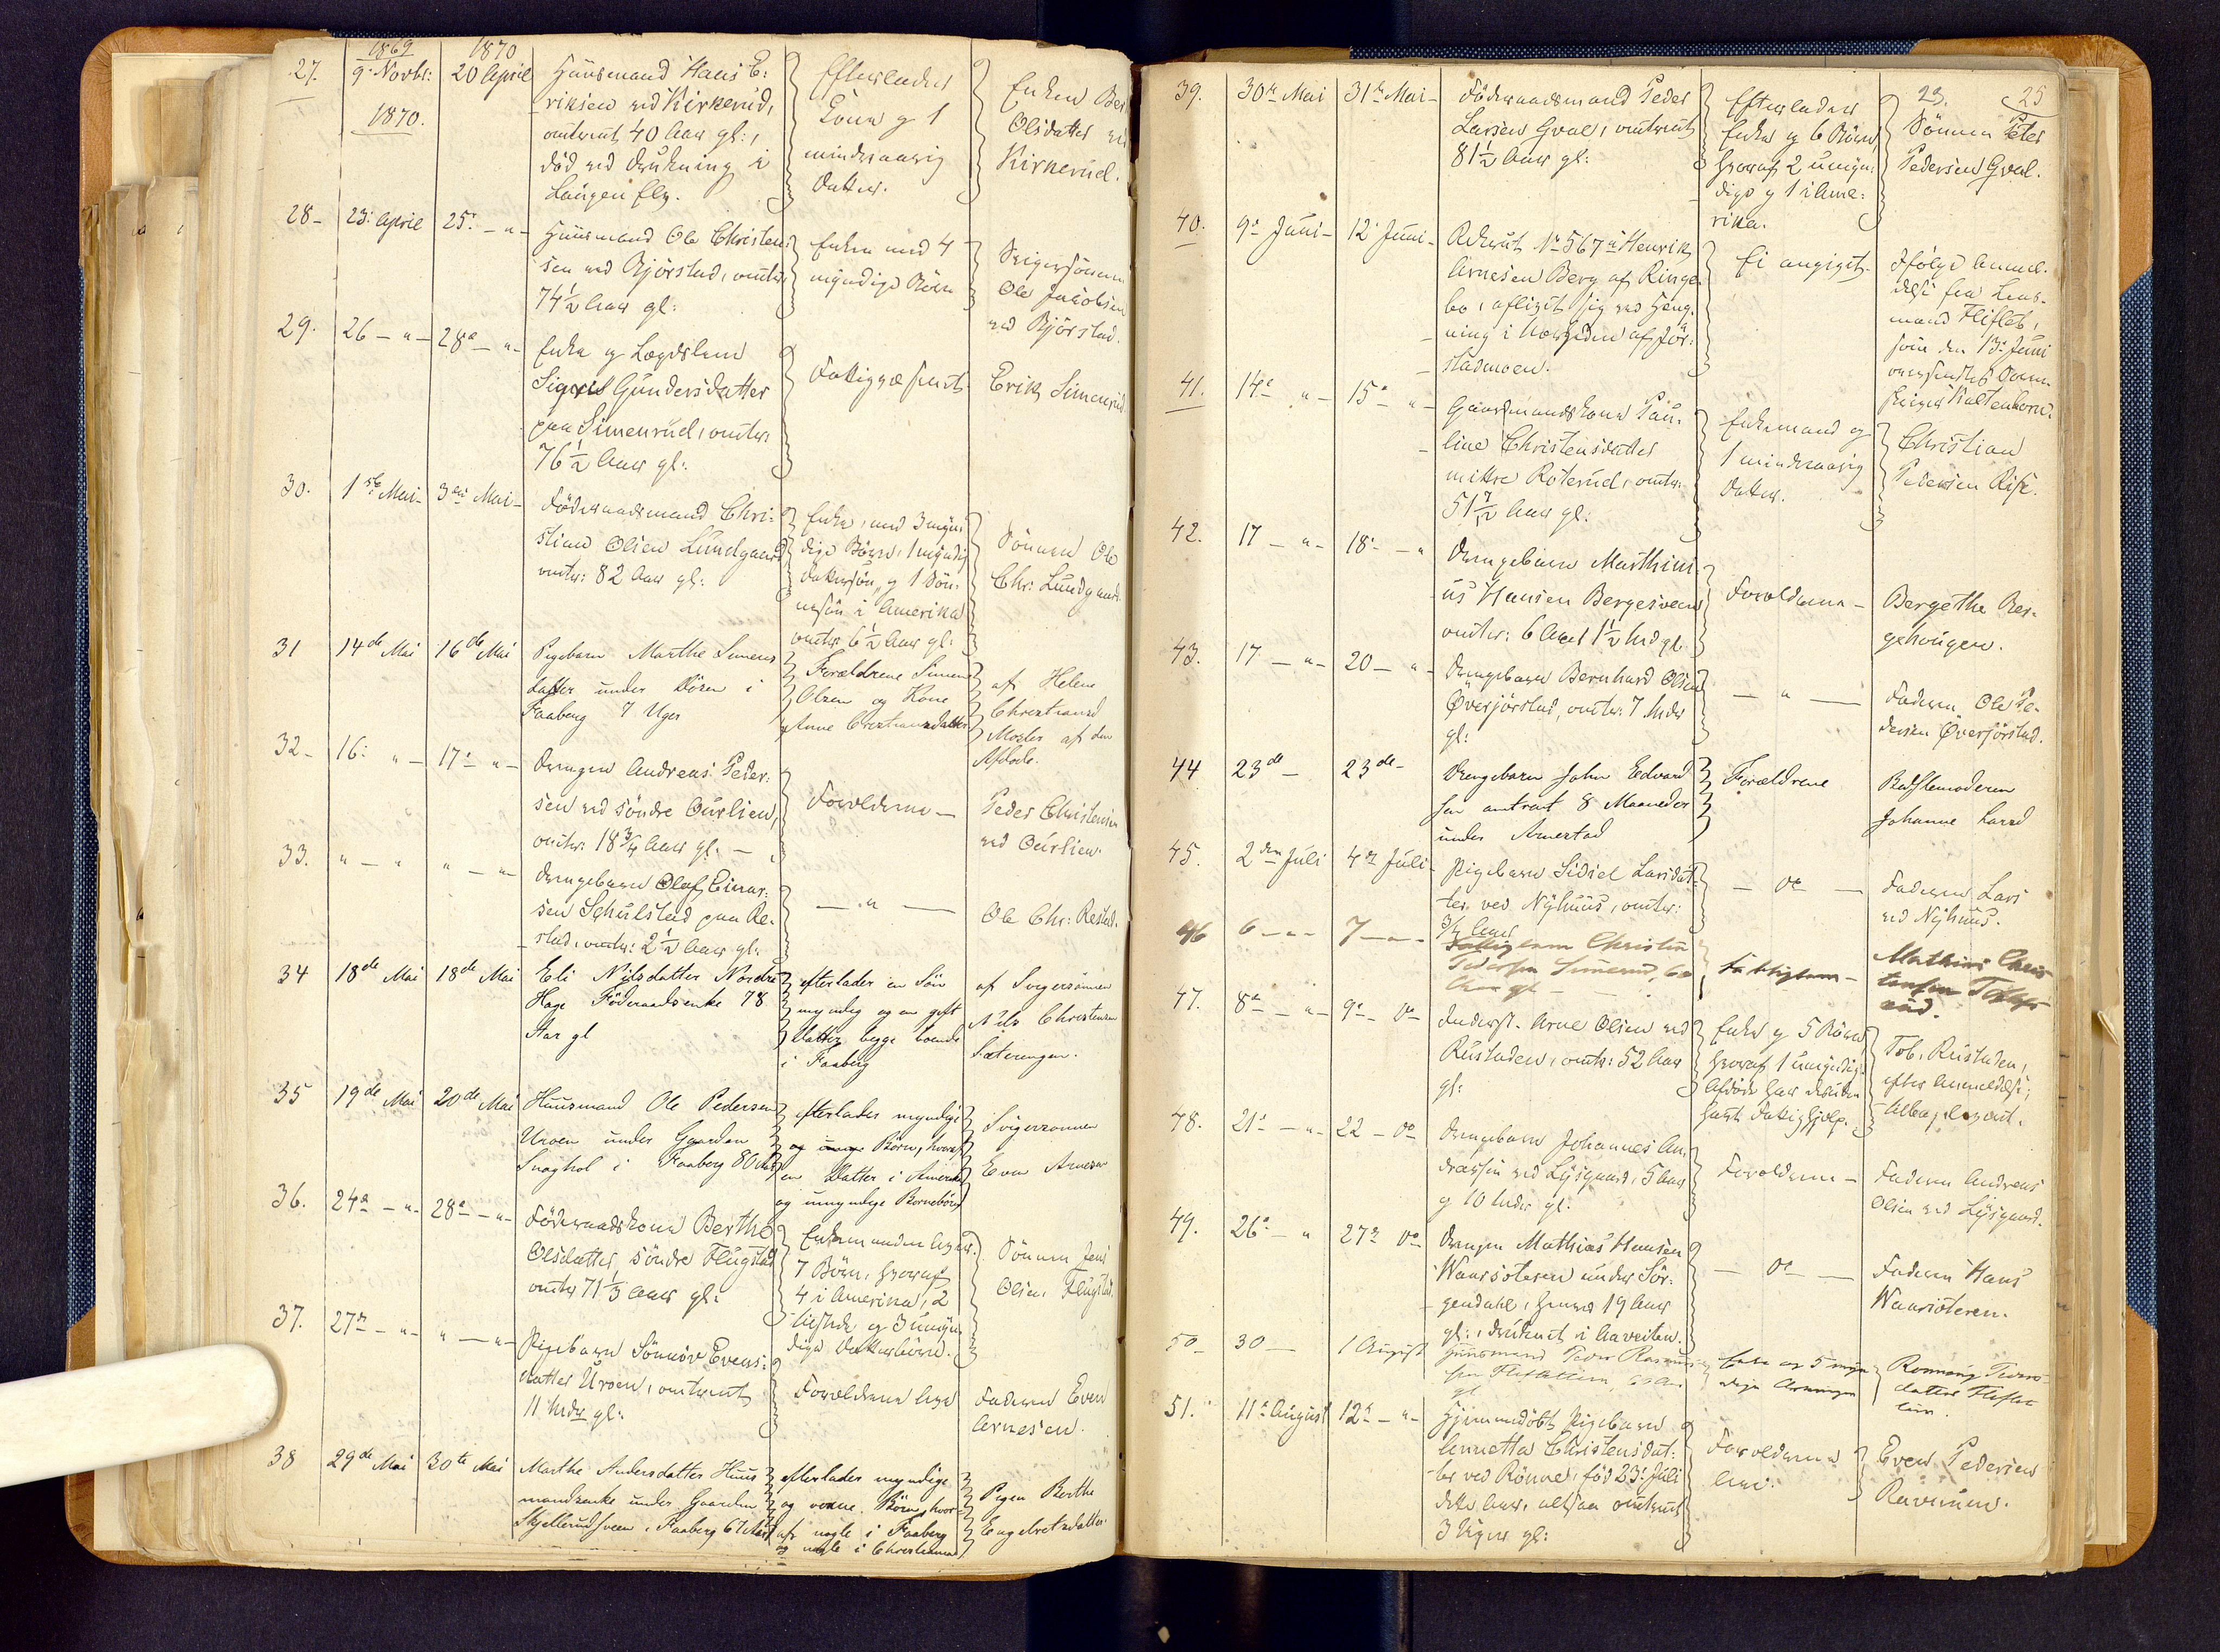 1869
1870
27.
9. Novbr:
20 April
Huusmand Hans E:
riksen ved Kirkerud,
omtrent 40 Aar gl:,
död ved Drukning i
Laagen
Efterlader
Kone og 1
mindreaarig
Datter.
Enken
Olsdatter
Kirkerud.
1870.
28-
23: April
25: - " -
Huusmand Ole Christen:
sen ved Björstad, omtr:
74½ Aar gl:
Enke med 4
myndige Börn
Svigersönnen
Ole Jacobsen
ved Björstad.
29.
26 - " -
28de - " -
Enke og Lægdslem
Gundersdatter
paa Simenrud, omtr:
76½ Aar gl:
Erik Simenrud
30.
1ste Mai-
3die Mai-
Föderaadsmand Chri:
stian Olsen Lundgaard
omtr: 82 Aar gl:
Enke, med 3 myn:
dige Börn, 1 myndig
Dattersön, og 1 Sön:
nesön i Amerika
omtr. 6½ Aar gl:
Sönnen Ole
Chr: Lundgaard.
31
14de Mai
16de Mai
Pigebarn Marthe Simens
datter under Dösen i
Faaberg 7 Uger
Forældrene Simen
Olsen og Kone
Anne Christiansdatter
af Helene
Christiansd
Moster af den
Afdöde.
32-
16: " -
17de " -
Drengen Andreas Peder:
sen ved söndre Ourlien,
omtr. 18¾ Aar gl. -
Forældrene -
Peder Christensen
ved Ourlien.
33.
" - "
" - " -
Drengebarn Olaf Einar:
sen Schulstad paa Re:
stad, omtr: 2½ Aar gl:
- " -
Ole Chr: Restad.
34
18de Mai
18de Mai
Eli Nilsdatter Nordre
Hage Föderaadsenke 78
Aar gl
efterlader en Sön
myndig og en gift
Datter begge boende
i Faaberg
af Svigersönnen
Nils Christensen
Sæterengen.
35
19de Mai
20de Mai
Huusmand Ole Pedersen
Uroen under Gaarden
Snaghol i Faaberg 80 Aar
efterlader myndige
og Börn, hvoraf
en Datter i Amerika
og umyndige Börnebörn
Svigersonnen
Even Arnesen
36.
24de - " -
28de - " -
Föderaadskone Berthe
Olsdatter söndre Flugstad
omtr 71⅓ Aar gl:
Enkemanden
7 Börn, hvoraf
4 i Amerika, 2
og 3 umyn
dige Datterbörn.
Sönnen Jens
Olsen Flugstad.
37.
27de - " -
" - " -
Pigebarn Sönnöv Evens:
datter Uroen, omtrent
11 Mdr gl:
Forældrene
Faderen Even
Arnesen.
38
29de Mai
30te Mai
Marthe Andersdatter Huus
mandsenke under Gaarden
Skjellerudsveen i Faaberg 67 Aar
efterlader myndige
og voxne Börn, hvor
af nogle i Faaberg
og nogle i Christiania
Pigen Berthe
Engebretsdatter
23.
25
39.
30te Mai
31te Mai-
Föderaadsmand Peder
Larsen Hval, omtrent
81½ Aar gl:
Efterlader
Enke og 6 Börn,
hvoraf 2 umyn:
dige og 1 i Ame:
rika.
Sönnen Peter
Pedersen Hval.
40.
9de Juni-
12te Juni-
Rekrut No 567 Henrik
Arnesen Berg af Ringe:
bo, aflivet sig ved Hæng:
ning i Nærheden af Jör:
stadmoen.
Ei angivet.
Ifölge Anmel:
delse fra Lens:
mand Flifleb,
som den 13de Juni
oversendtes Soren:
skriver Kaltenborn.
41.
14de " -
15de " -
Gaardmandskone Pau:
line Christensdatter
mittre Roterud, omtr.
51 7/12 Aar gl:
Enkemand og
1 mindreaarig
Datter.
Christian
Pedersen Rise.
42.
17 - " -
18de - "
Drengebarn Marthini
us Hansen Bergesveen
omtr: 6 Aar 1½ Md gl
Forældrene -
Bergethe Ber:
gehougen.
43.
17 - " -
20 - " -
Drengebarn Bernhard Olsen
Överjörstad, omtr. 7 Mdr
gl:
- " -
Faderen Ole Pe:
dersen Överjörstad.
44
23de -
23de -
Drengebarn Johan Edvard
sen omtrent 8 Maaneder
under Arnestad
Forældrene
Bedstemoderen
Johanne Larsd
45.
2den Juli
4de Juli-
Pigebarn Sidsel Larsdat:
ter ved Nyhuus, omtr:
¾ Aar
- do -
Faderen Lars
ved Nyhuus.
46
6 - " -
7 - " -
Fattiglem Christen
Pedersen Simenrud, 60
Aar gl -
Fattiglem -
Mathias Chris
tensen
47.
8de - " -
9de - do
Inderst. Arne Olsen ved
Rustaden, omtr: 52 Aar
gl:
Enke og 5 Börn,
hvoraf 1 umyndig.
Afdöde har desuden
havt Fattighjelp.
Tob. Rustaden,
efter Anmeldelse,
48.
21de - " -
22 - do
Drengebarn Johannes An
dreassen ved Lysgaard, 5 Aar
og 10 Mdr gl:
Forældrene -
Faderen Andreas
Olsen ved Lysgaard.
49.
26de - "
27de do
Drengen Mathias Hansen
Waarsöteren under Sör:
gendahl, 19 Aar
gl:, druknet i
- do -
Faderen Hans
Waarsöteren.
50-
30 -
1 August
Huusmand Peder Rasmus
sen
gl
Enke og 5 myn
dige
Ronnaug Peders-
datter
51.
11te August
12te - " -
Hjemmedöbt Pigebarn
Annetta Christensdat:
ter ved Rönne, föd 23de Juli
dette Aar, altsaa omtrent
3 Uger gl:
Forældrene
Even Pedersen